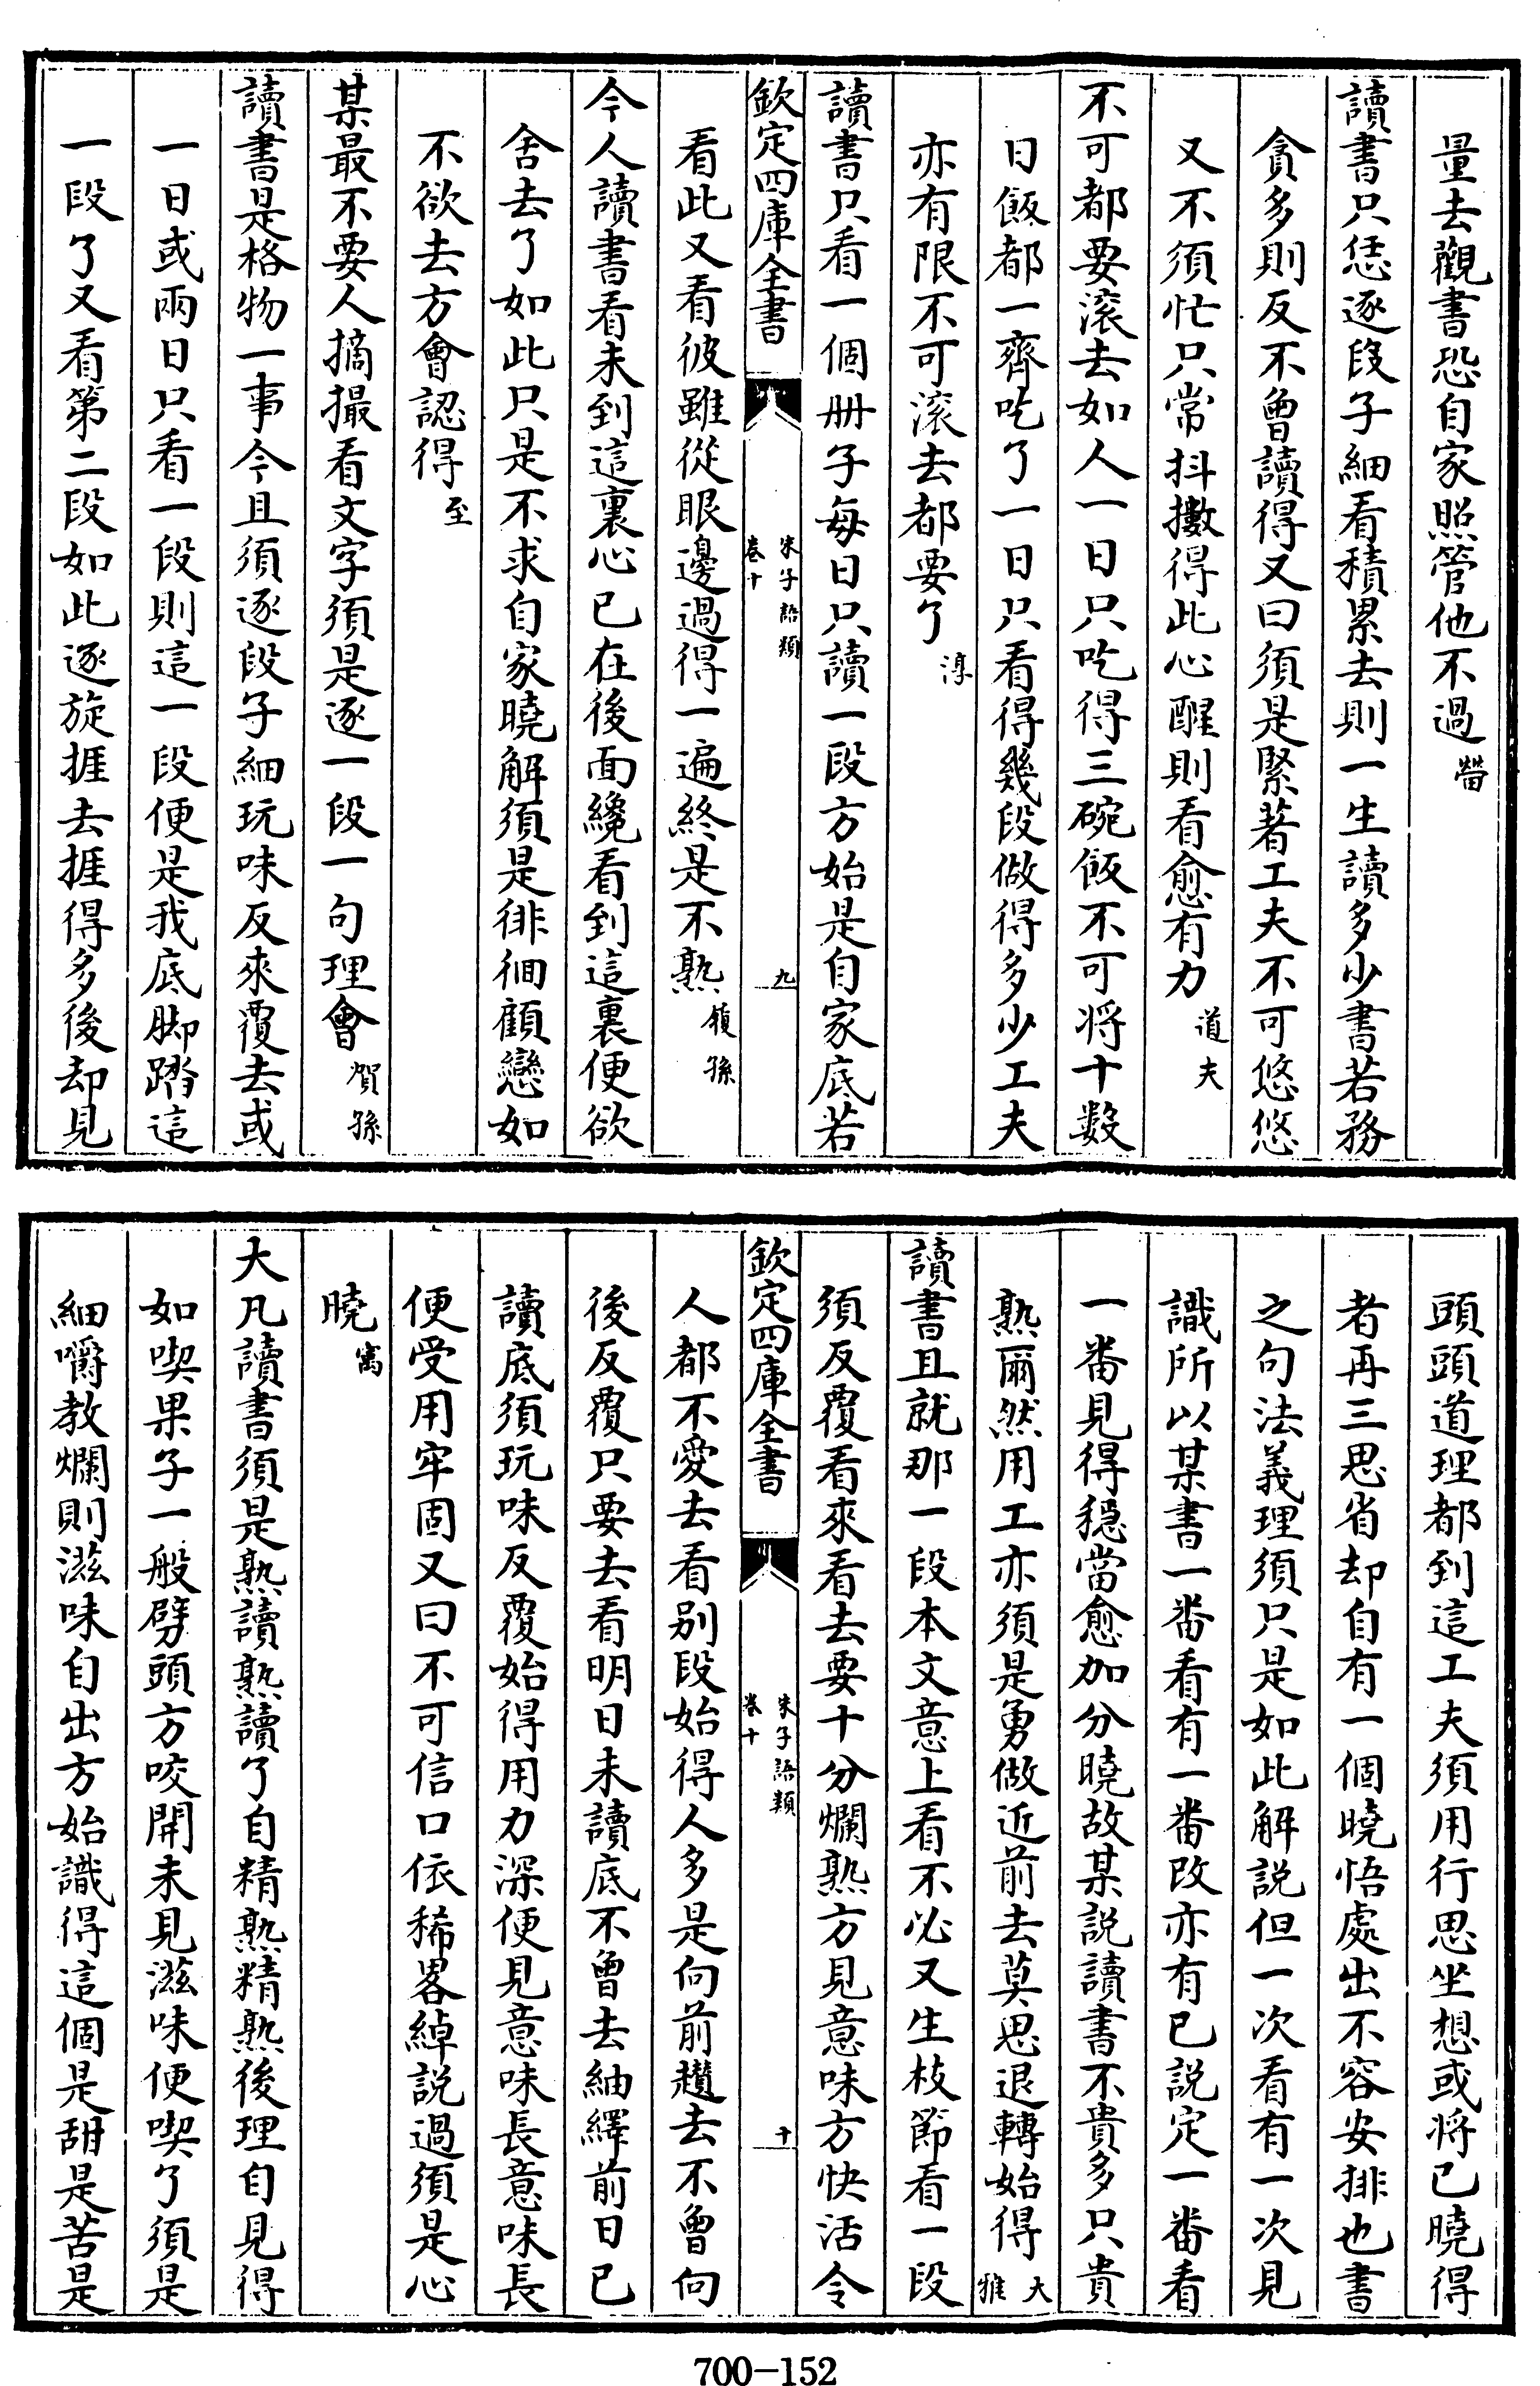 量去觀書恐自家照管他不過㽦
讀書只恁逐段子細看積累去則一生讀多少書若務
貪多則反不曾讀得又曰須是緊著工夫不可悠悠
又不須忙只常抖擻得此心醒則看愈有力道夫
不可都要滚去如人一日只吃得三碗飯不可將十數
日飯都一齊吃了一日只看得幾段做得多少工夫
亦有限不可滚去都要了淳
讀書只看一個册子每日只讀一段方始是自家底若
欽定四庫全書
朱子語類
卷十
九
看此又看彼雖從眼邊過得一遍終是不熟履孫
今人讀書看未到這裏心已在後面纔看到這裏便欲
舍去了如此只是不求自家曉解須是徘徊顧戀如
不欲去方會認得至
某最不要人摘撮看文字須是逐一段一句理會賀孫
讀書是格物一事今且須逐段子細玩味反來覆去或
一日或兩日只看一段則這一段便是我底脚踏這
一段了又看第二段如此逐旋捱去捱得多後却見
頭頭道理都到這工夫須用行思坐想或將已曉得
者再三思省却自有一個曉悟處出不容安排也書
之句法義理須只是如此解說但一次看有一次見
識所以某書一番看有一番改亦有已說定一番看
一番見得穩當愈加分曉故某說讀書不貴多只貴
熟爾然用工亦須是勇做近前去莫思退轉始得大雅
讀書且就那一段本文意上看不必又生枝節看一段
須反覆看來看去要十分爛熟方見意味方快活令
欽定四庫全書
朱子語類
卷十
十
人都不愛去看别段始得人多是向前趲去不曾向
後反覆只要去看明日未讀底不曾去紬繹前日已
讀底須玩味反覆始得用力深便見意味長意味長
便受用牢固又曰不可信口依稀畧綽說過須是心
曉㝢
大凡讀書須是熟讀熟讀了自精熟精熟後理自見得
如喫果子一般劈頭方咬開未見滋味便喫了須是
細嚼教爛則滋味自出方始識得這個是甜是苦是
700-152